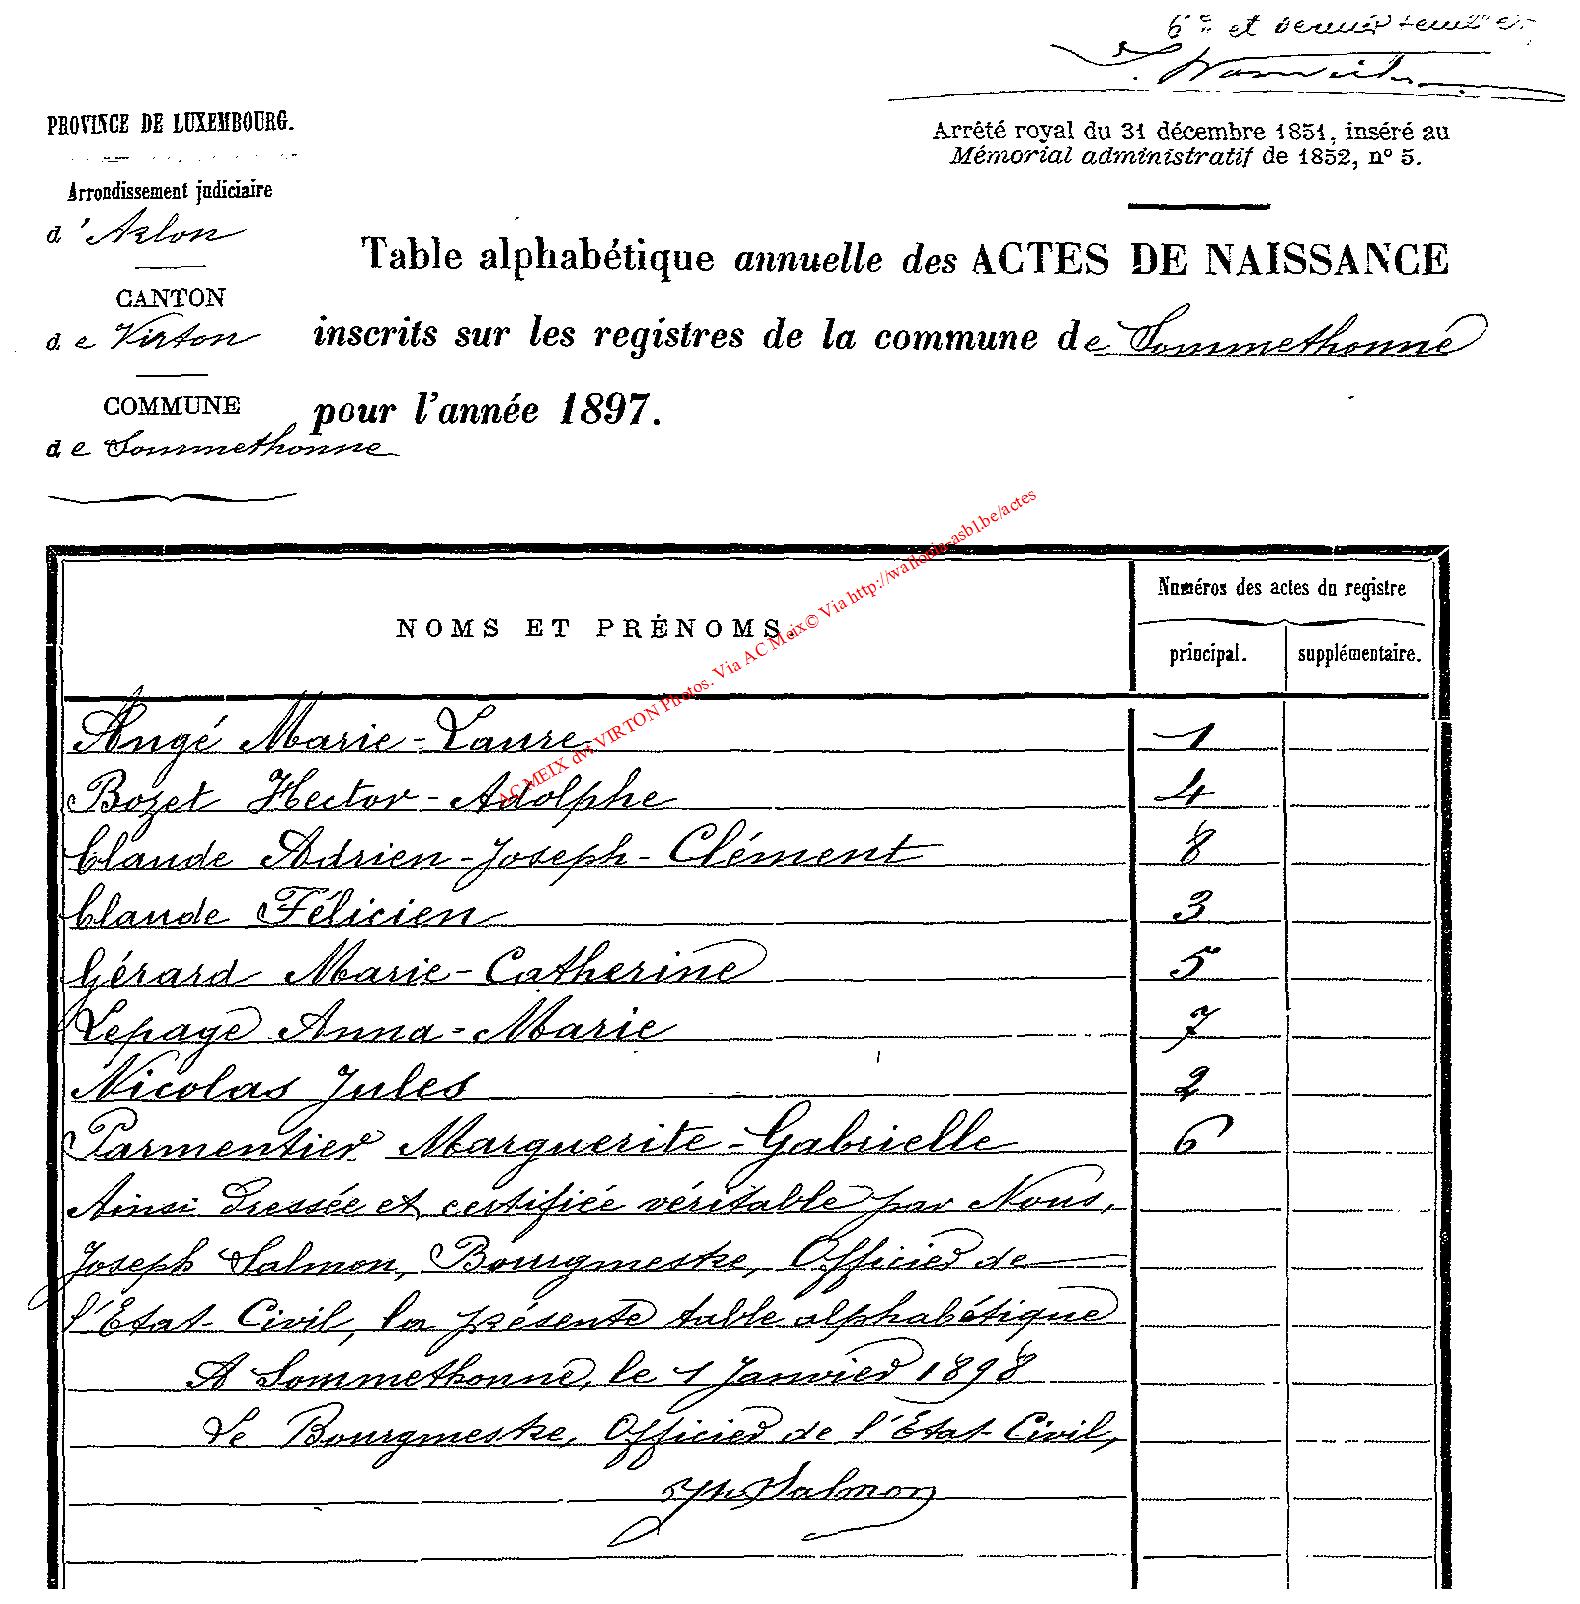 6e et dernier
PROVINCE DE LUXEMBOURG.
Arrêté royal du 31 décembre 1851, inséré au
Mémorial administratif de 1852, nº 5.
Arrondissement judiciaire
d'Arlon
CANTON
de Virton
COMMUNE
de Sommethonne
Table alphabétique annuelle des ACTES DE NAISSANCE
inscrits sur les registres de la commune de Sommethonne
pour l'année 1897.
AC MEIX dvt VIRTON Photos. Via AC Meix© Via http://wallonia-asbl.be/actes
NOMS ET PRÉNOMS.
Numéros des actes du registre
principal. supplémentaire.
Angé Marie-Laure 1
Bozet Hector-Adolphe 4
Claude Adrien-Joseph-Clément 8
Claude Félicien 3
Gérard Marie-Catherine 5
Lepage Anna-Marie 7
Nicolas Jules 2
Parmentier Marguerite-Gabrielle 6
Ainsi Dressée et certifiée véritable par Nous,
Joseph Salmon, Bourgmestre, Officier de
l'Etat-Civil, la présente table alphabétique
A Sommethonne, le 1 Janvier 1898
Le Bourgmestre, Officier de l'Etat-Civil,
Jph Salmon